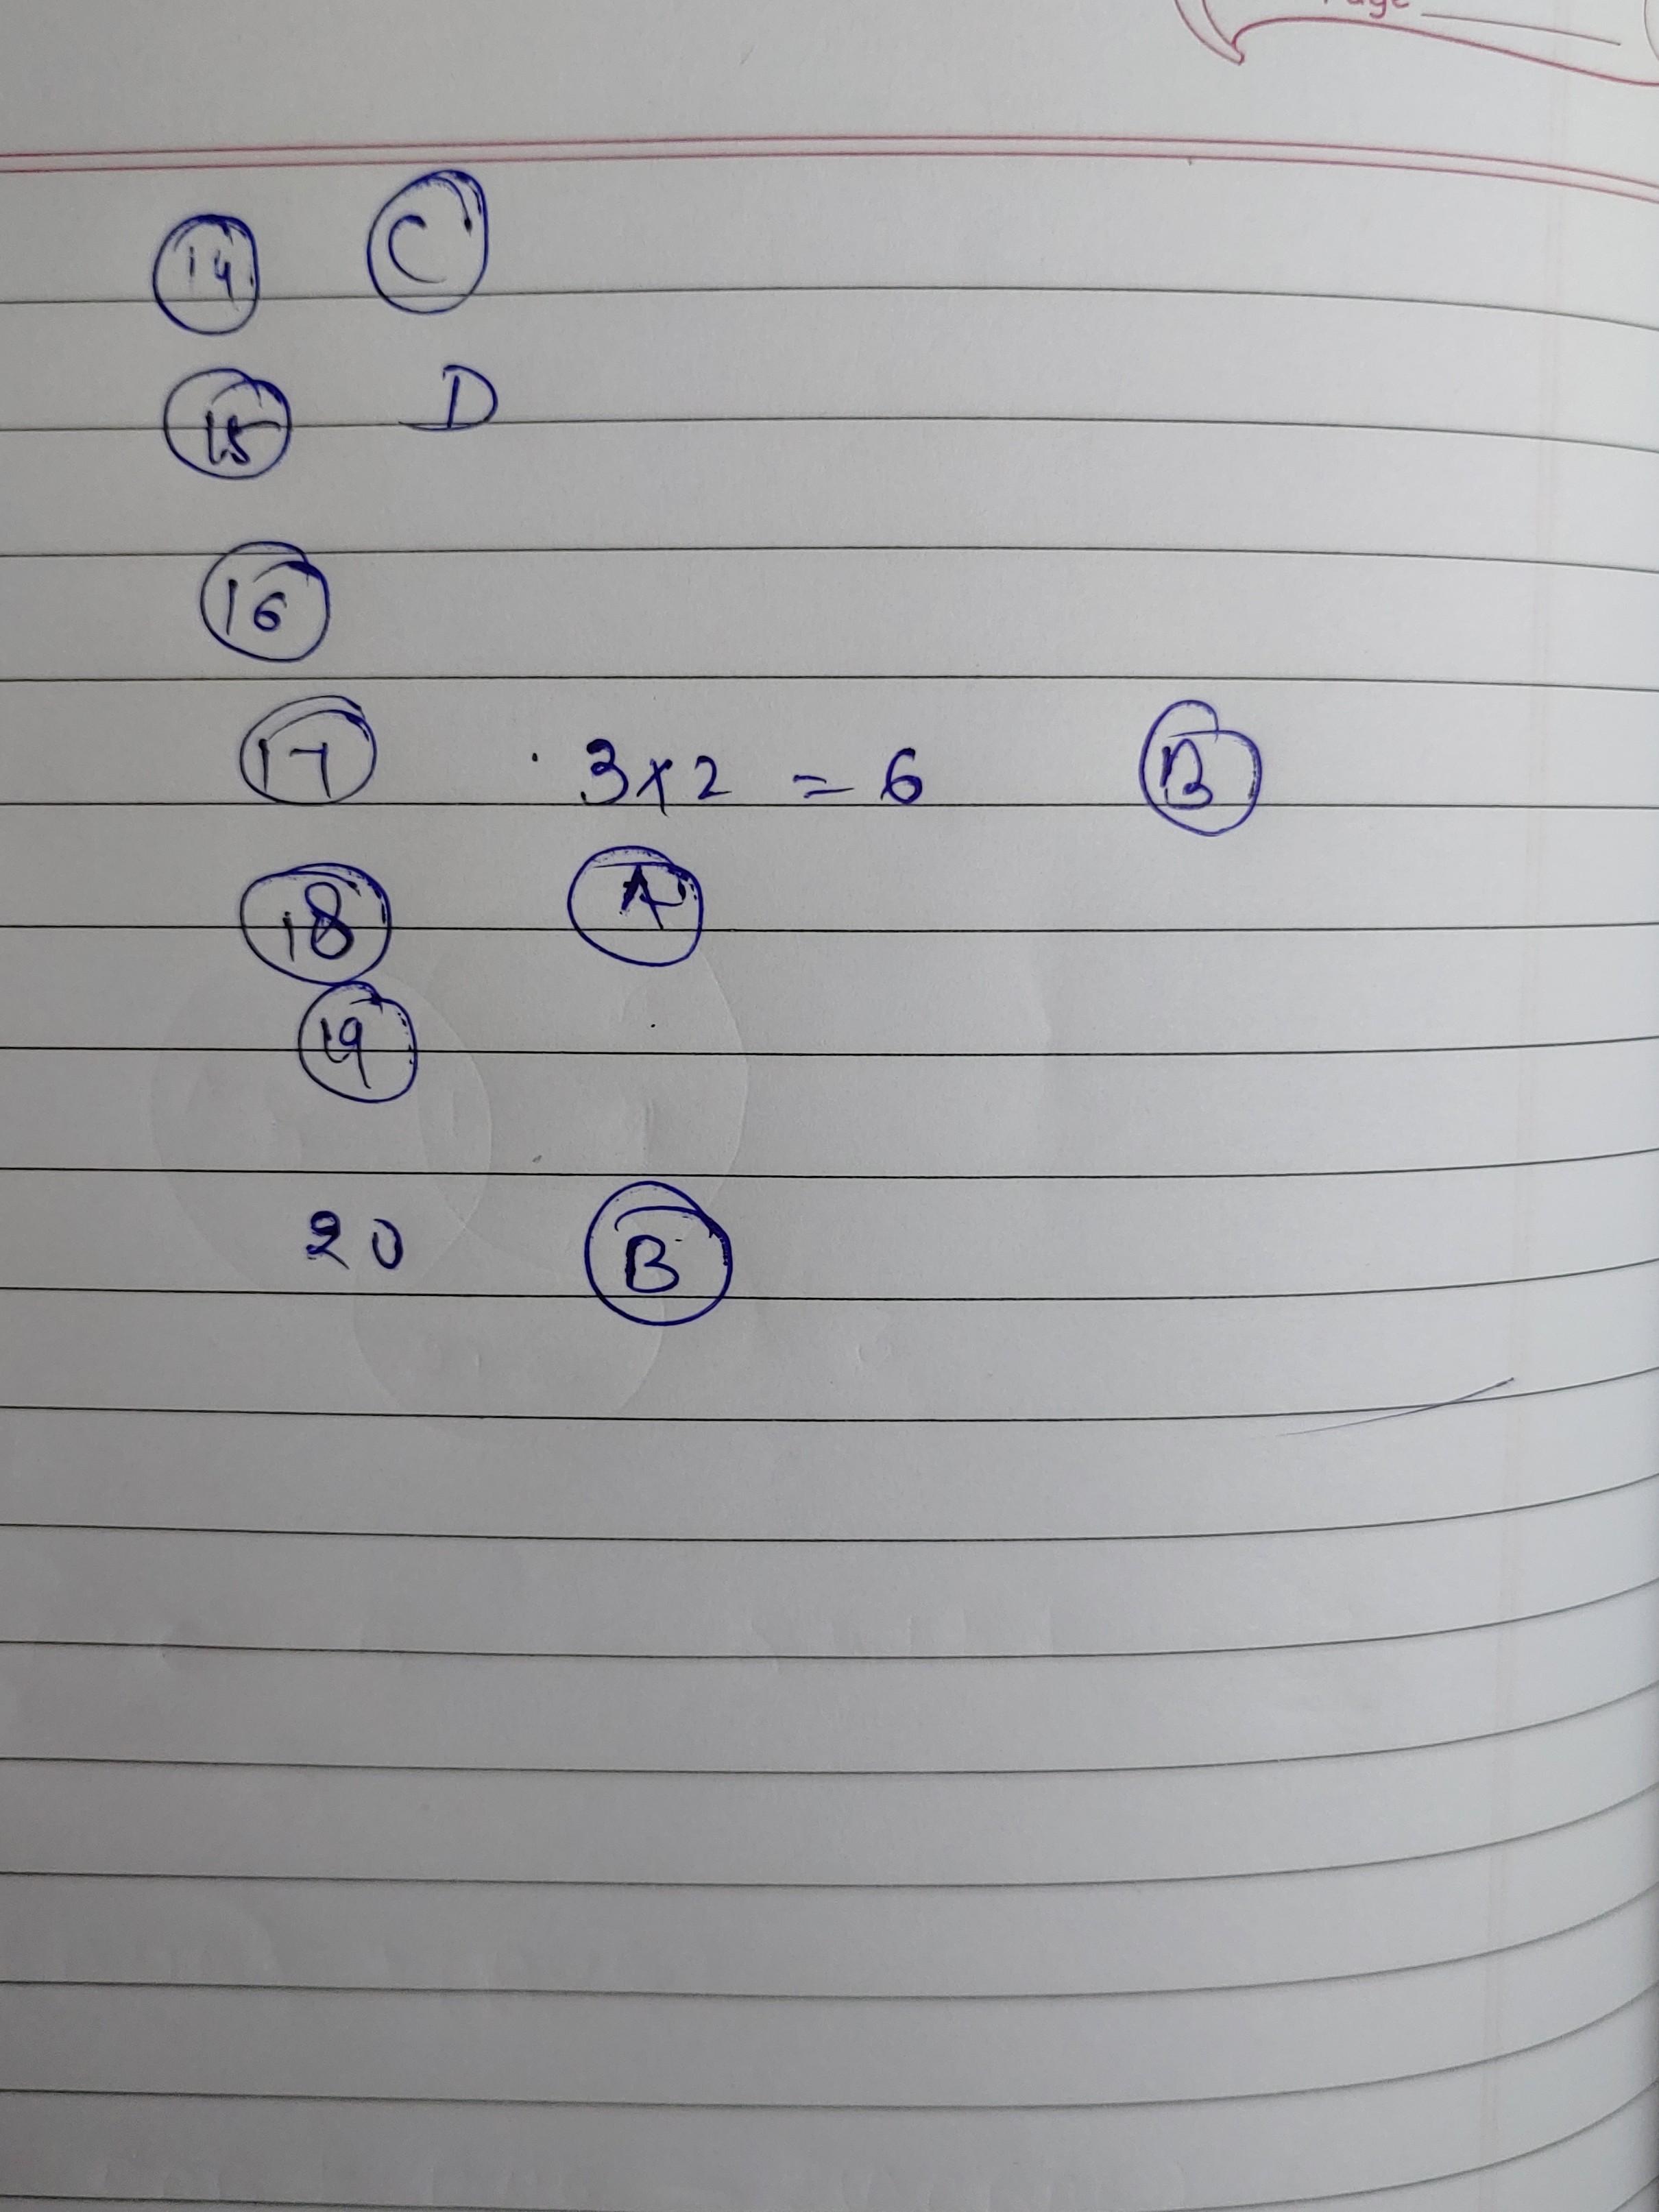 Page
14 C
15 D
16
17 3×2 = 6 B
18 A
19
20 B